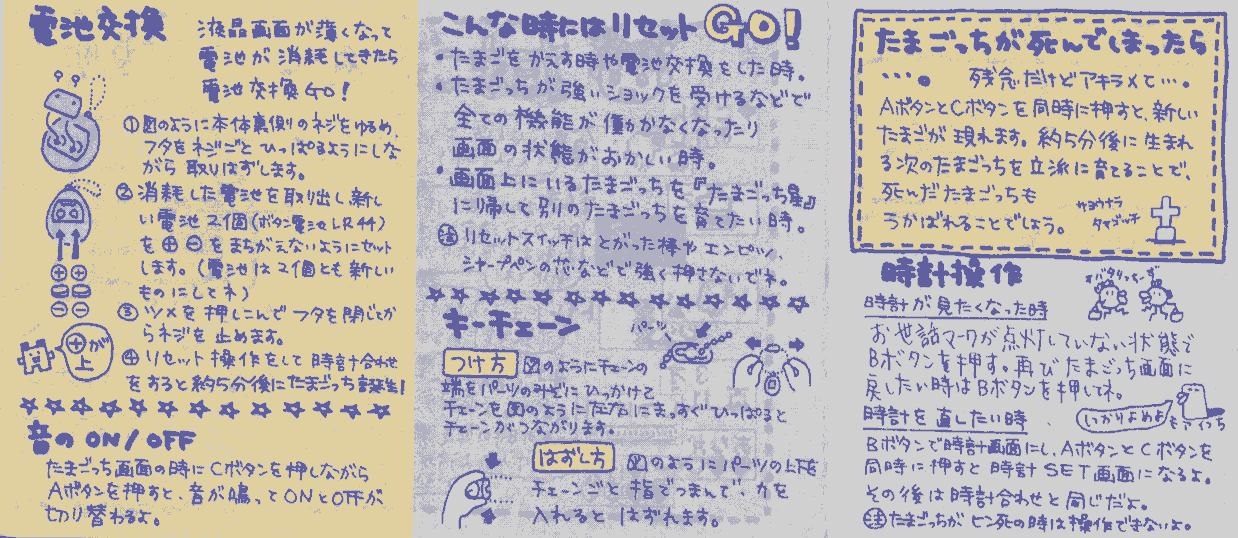 電池交換
液晶画面が薄くなって
電池が消耗してきたら
電池交換GO!
①図のように本体裏側のネジをゆるめ、
フタをネジごとひっぱるようにしな
がら取りはずします。
②消耗した電池を取り出し、新し
い電池2個(ボタン電池LR44)
を⊕⊖をまちがえないようにセット
します。(電池は2個とも新しい
ものにしてネ)
③ツメを押しこんでフタを閉じてか
らネジを止めます。
④リセット操作をして時計合わせ
をすると約5分後にたまごっち誕生!
⊕が
上
音のON/OFF
たまごっち画面の時にCボタンを押しながら
Aボタンを押すと、音が鳴ってONとOFFが
切り替わるよ。
こんな時にはリセットGO!
・たまごをかえす時や電池交換をした時。
・たまごっちが強いショックを受けるなどで
全ての機能が働かなくなったり
画面の状態がおかしい時。
・画面上にいるたまごっちを『たまごっち星』
に帰して別のたまごっちを育てたい時。
㊟リセットスイッチはとがった棒やエンピツ、
シャープペンの芯などで強く押さないでネ。
キーチェーン
パーツ
つけ方 図のようにチェーンの
端をパーツのみぞにひっかけて
チェーンを図のように左右にまっすぐひっぱると
チェーンがつながります。
はずし方 図のようにパーツの上下を
チェーンごと指でつまんで、力を
入れるとはずれます。
たまごっちが死んでしまったら
…。 残念だけどアキラメて…。
AボタンとCボタンを同時に押すと、新しい
たまごが現れます。約5分後に生まれ
る次のたまごっちを立派に育てることで、
死んだたまごっちも
うかばれることでしょう。
サヨウナラ
タマゴッチ
時計操作
時計が見たくなった時
お世話マークが点灯していない状態で
Bボタンを押す。再びたまごっち画面に
戻したい時はBボタンを押してネ。
時計を直したい時
しっかりよめよ
Bボタンで時計画面にし、AボタンとCボタンを
同時に押すと時計SET画面になるよ。
その後は時計合わせと同じだよ。
㊟たまごっちがピン死の時は操作できないよ。